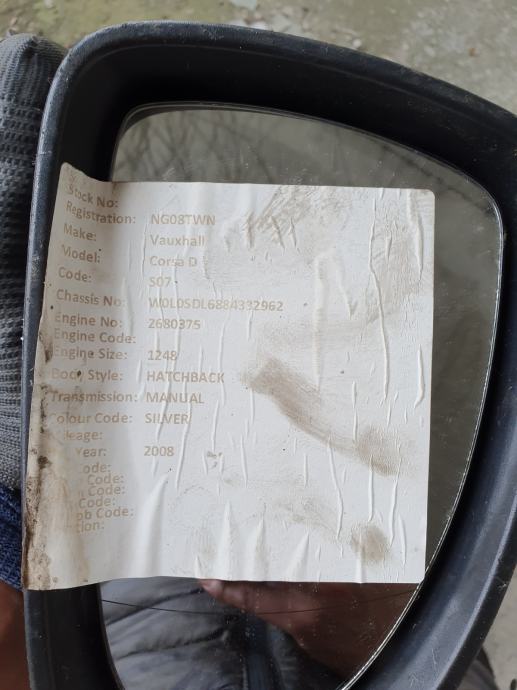 Stock No:
Registration: NG08TWN
Make: Vauxhall
Model: Corsa D
Code: S07
Chassis No: W0L0SDL6884332962
Engine No: 2680375
Engine Code:
Engine Size: 1248
Body Style: HATCHBACK
Transmission: MANUAL
Colour Code: SILVER
Mileage:
Year: 2008
Code:
Code:
Code:
Code:
Code: